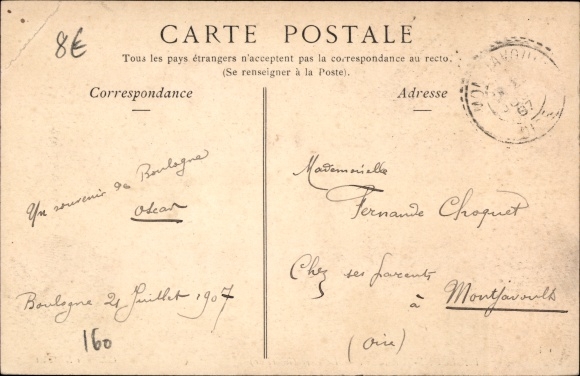 8€
CARTE POSTALE
Tous les pays étrangers n'acceptent pas la correspondance au recto.
(Se renseigner à la Poste).
Correspondance
Adresse
Un souvenir de Boulogne
Oscar
Boulogne 21 Juillet 1907
160
Mademoiselle
Fernande Choquet
Chez ses parents
à Montjavoult
(Oise)
07